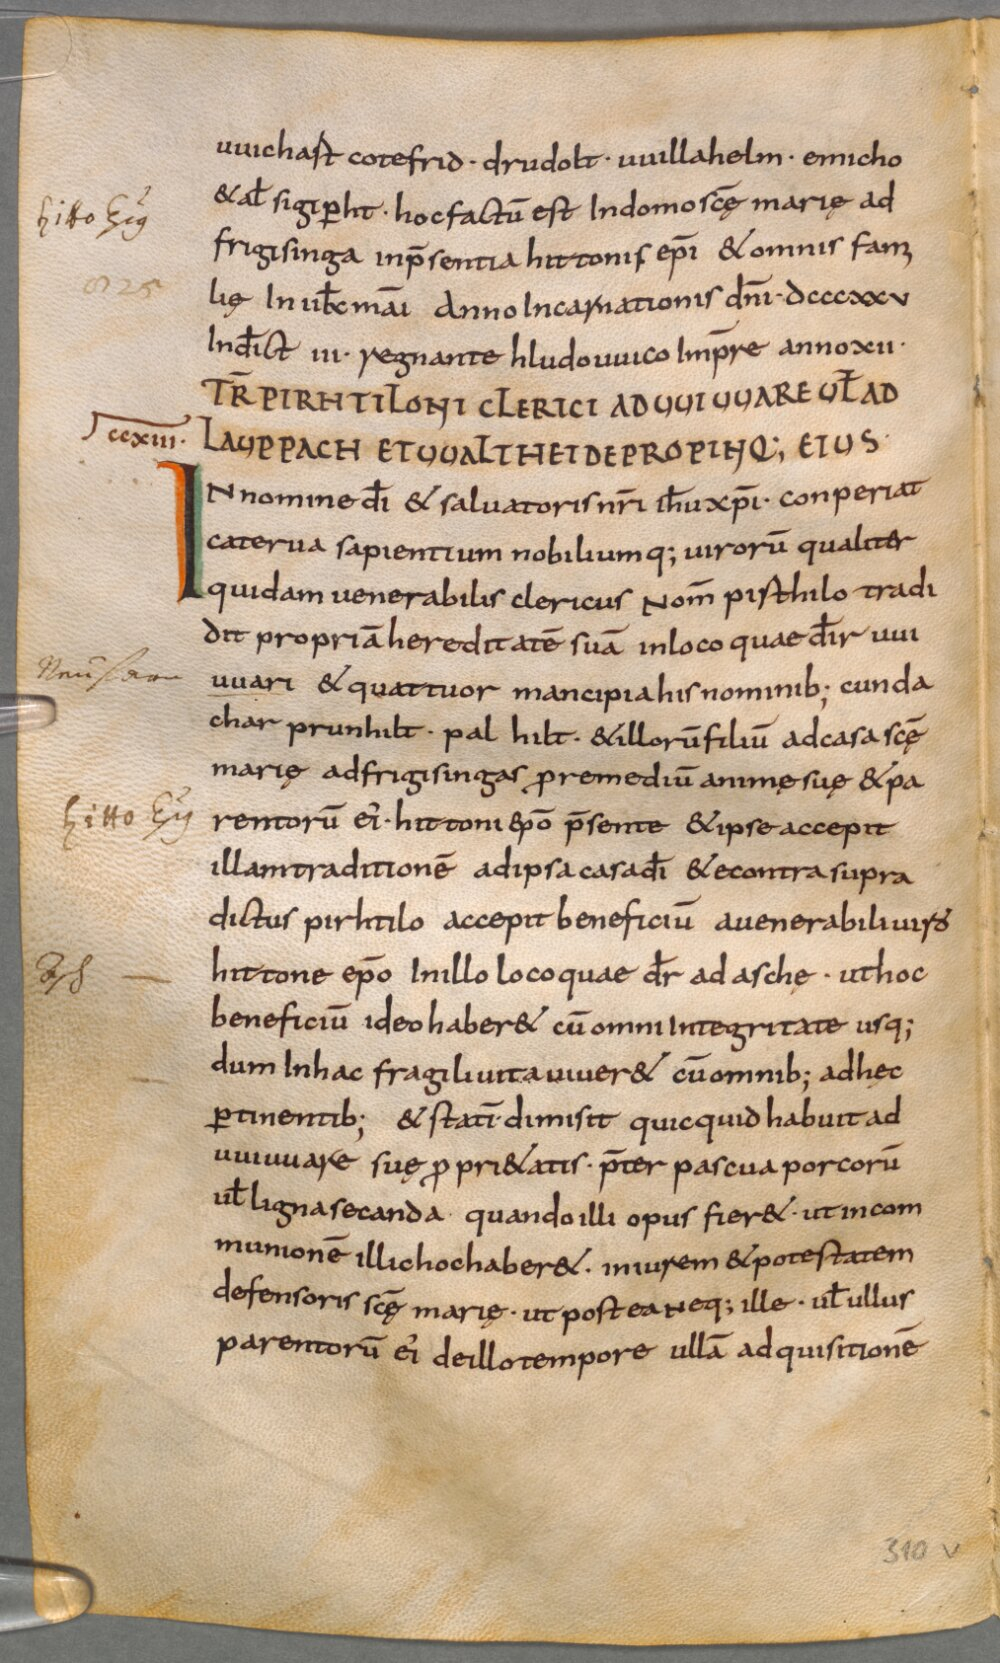 uuichast cotefrid · drudolt · uuillahelm · emicho
hitto Ep̄s
& al̄ sigip̄ht · hoc factū est In domo scę̄ marię ad
frigisinga inp̄sentia hittonis ep̄i & omnis fami
825
lię In ul̄t mān Anno Incarnationis dn̄i · dcccxxv
Ind̄ict iii · regnante hludouuico Imp̄re anno xii ·
TR̄ PIRHTILONI CLERICI AD UUIUUARE UL̄ AD
ccxiii ·
LAUPPACH ET UUALTHEI DE PROPINQ; EIUS
IN nomine dī & saluatoris nr̄i ih̄u xp̄i · conperiat
caterua sapientium nobiliumq; uirorū qualiter
quidam uenerabilis clericus Nom̄ pisthilo tradi
dit propriā hereditatē suā in loco quae dr̄ uui
uuari & quattuor mancipia his nominib; cunda
char prunhilt · pal hilt · & illorū filiū ad casa scę̄
marię ad frigisingas p̱ remediū animę suę & pa
hitto Ep̄s
rentorū ei᷒ · hittoni ep̄o p̄sente & ipse accepit
illam traditionē ad ipsa casa dī & econtra supra
dictus pirhtilo accepit beneficiū a uenerabili uiro
hittone ep̄o In illo loco quae dr̄ ad aschę · ut hoc
beneficiū ideo haber& cū omni Integritate usq;
dum In hac fragili uita uiuer& cū omnib; ad hęc
p̱tinentib; & statī dimisit quicquid habuit ad
uuiuuare suę p̱pri&atis · p̄ter pascua porcorū
ul̄ ligna secanda quando illi opus fier& · ut in com
munionē illic hoc haber& · in iurem & potestatem
defensoris scę̄ marię · ut postea Neq; ille · ul̄ ullus
parentorū ei᷒ de illo tempore ullā adquisitionē
310 v